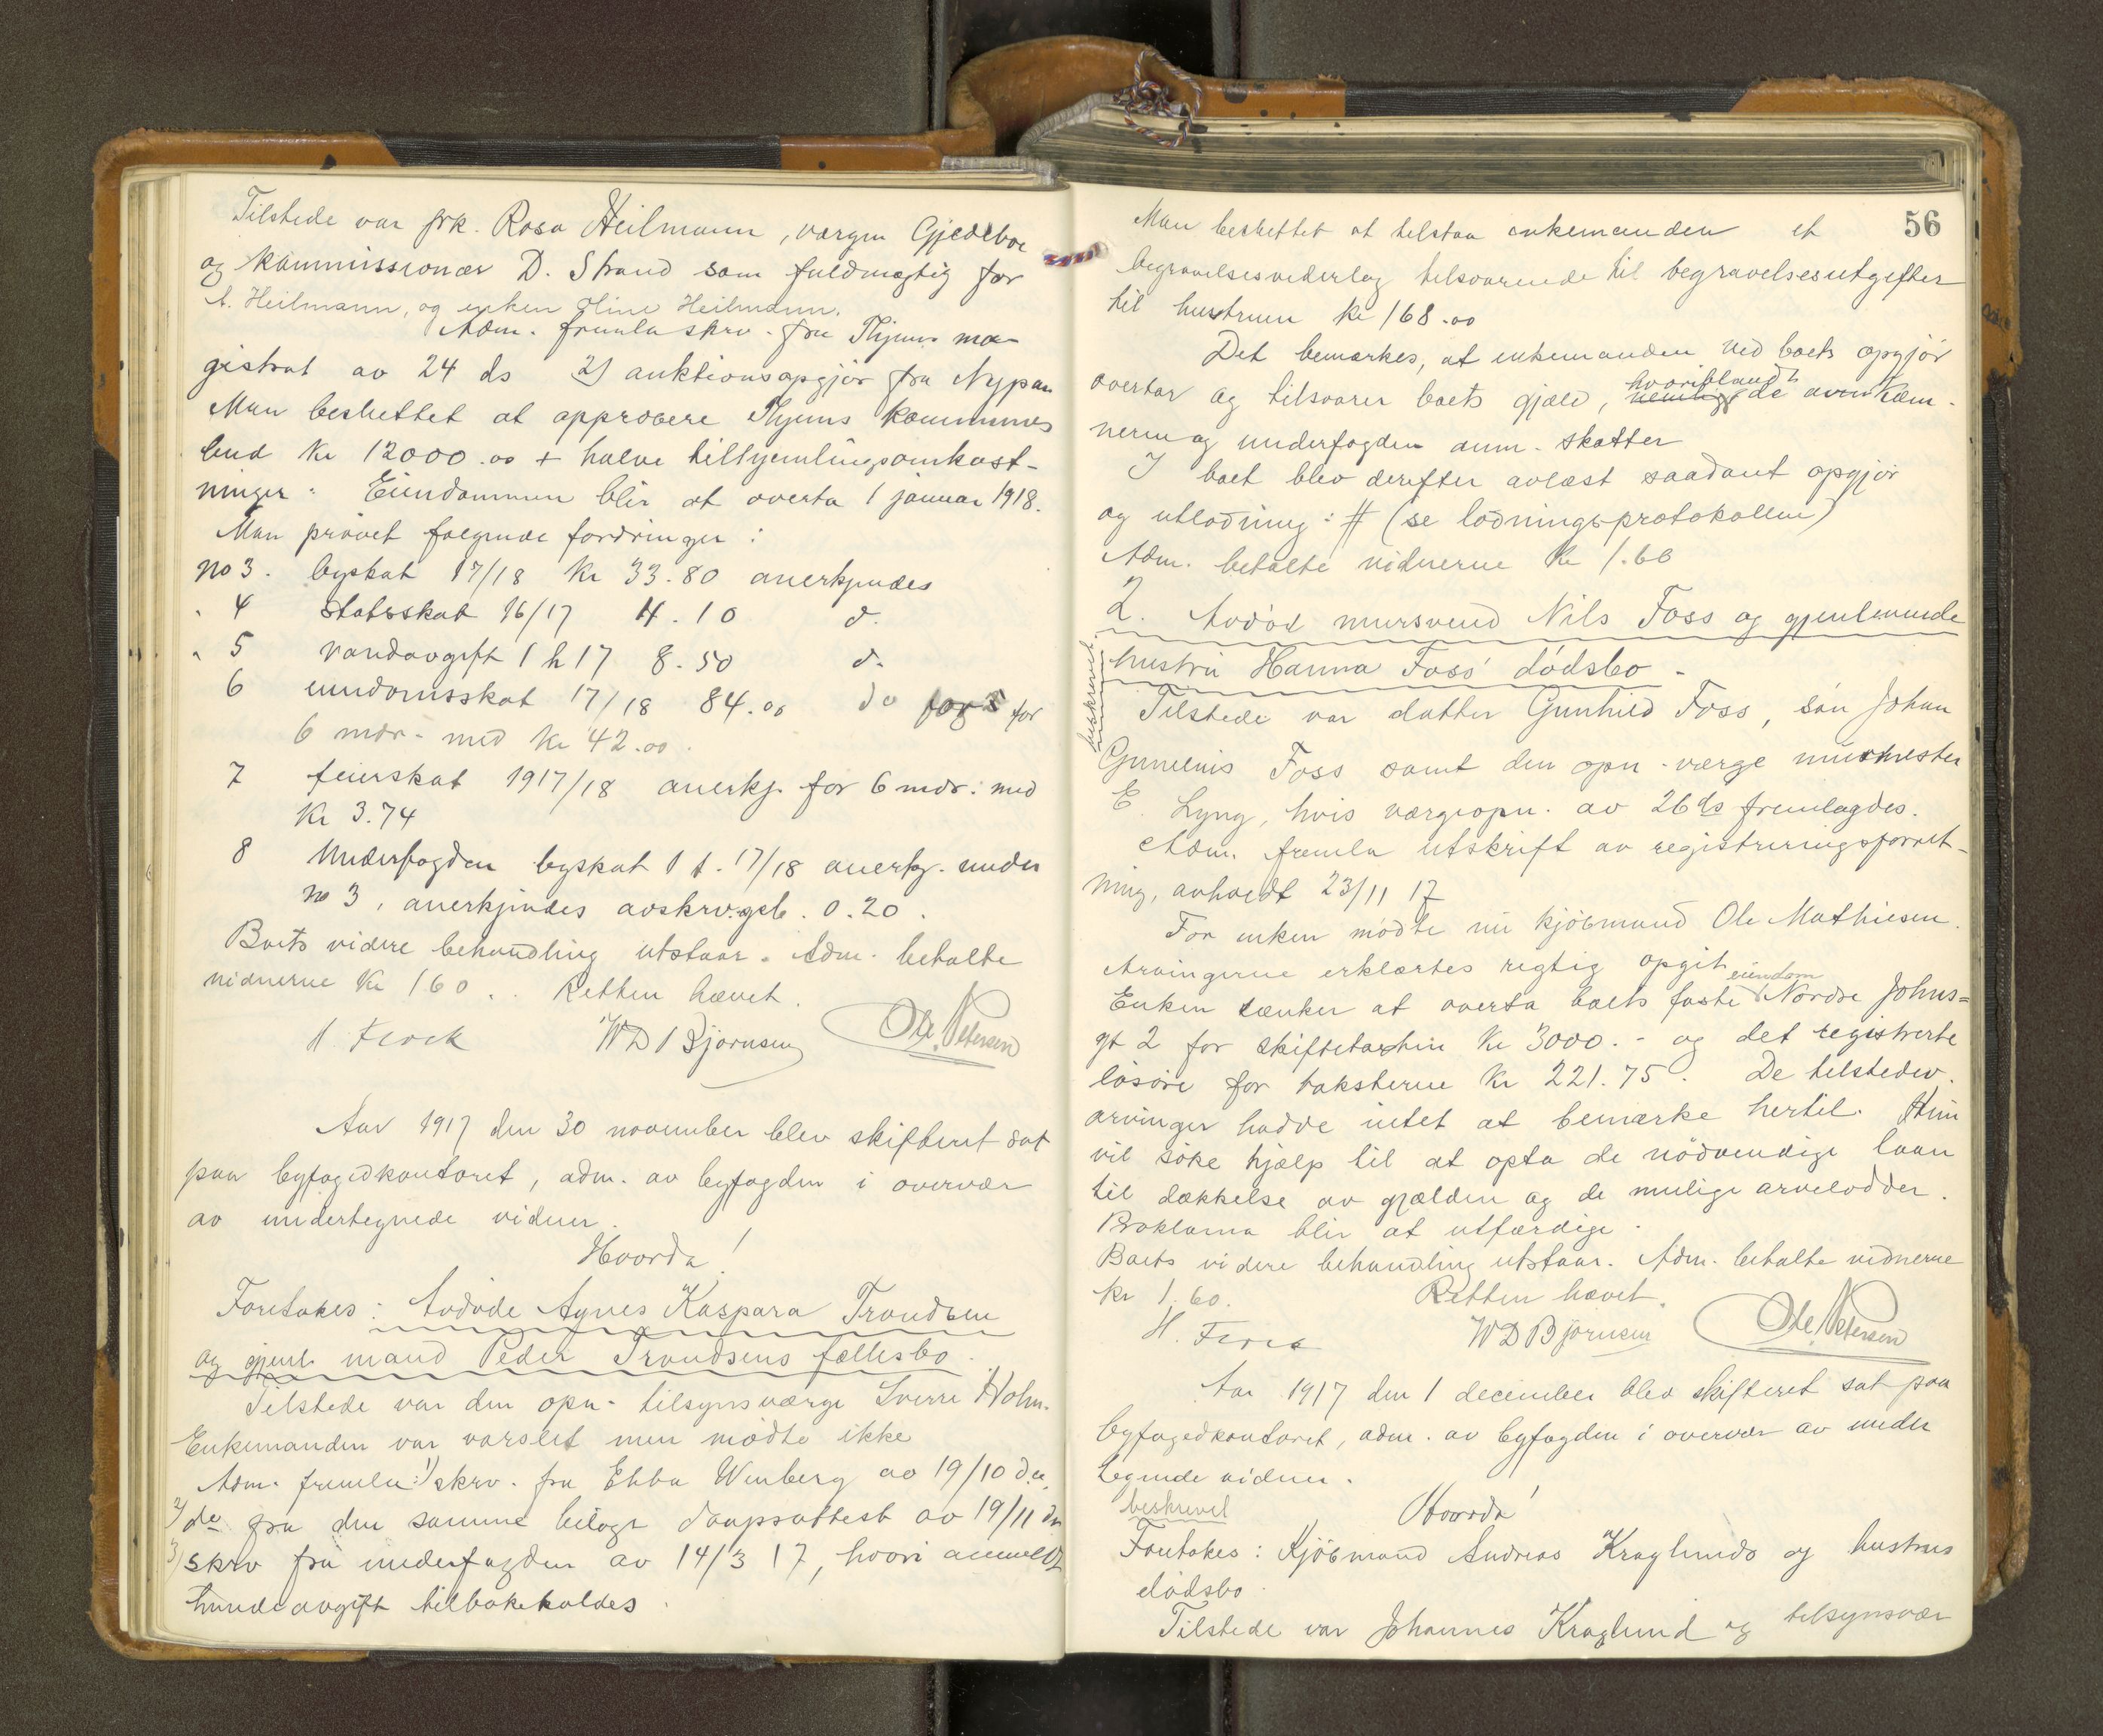 Tilstede var frk. Rosa Heilmann, værgen Gjedeboe
og kommissionær D. Strand som fuldmægtig for
A. Heilmann, og enken Oline Heilmann.
Adm. fremla skrv. fra Byens ma-
gistrat av 24 ds 2) auktionsopgjør fra Nypan
Man besluttet at approbere Byens kommunes
bud Kr 12000.00 + halve tilhjemlingsomkost-
ninger. Eiendommen blir at overta 1 januar 1918.
Man prøvet følgende fordringer:
No 3. byskat 17/18 Kr 33.80 anerkjendes
" 4 statsskat 16/17 4.10 d.
" 5 vandavgift 1 h 17 8.50 d.
6 eiendomsskat 17/18 84.00 do for
6 mdr. med Kr 42.00.
7 feierskat 1917/18 anerkj. for 6 mdr. med
Kr 3.74
8 Underfogden byskat 1 t. 17/18 anerkj. under
no 3, anerkjendes avskrv.geb. 0.20.
Boets videre behandling utstaar. Adm. betalte
vidnerne Kr 1 60. Retten hævet.
H. WD Bjørnsen Ole Petersen
Aar 1917 den 30 november blev skifteret sat
paa byfogedkontoret, adm. av byfogden i overvær
av undertegnede vidner.
Hvorda!
Foretokes: Avdøde Agnes Kaspara Trondsen
og gjenl. mand Peder Trondsens fællesbo.
Tilstede var den opn. tilsynsværge Sverre Holm.
Enkemanden var varslet men mødte ikke
Adm. fremla: 1) skrv. fra Ebba Winberg av 19/10 d.a.
2) do fra den samme bilagt daapsattest av 19/11 da
3) skrv fra underfogden av 14/3 17, hvori anmeldt
hundeavgift tilbakekaldes.
56
Man besluttet at tilstaa enkemanden et
begravelsesvederlag tilsvarende til begravelsesutgifter
til hustruen kr 168.00
Det bemærkes, at enkemanden ved boets opgjør
hvoriblandt
overtar og tilsvarer boets gjæld, de av kæm-
neren og underfogden anm. skatter
I boet blev derefter avlæst saadant opgjør
og utlodning: # (se lodningsprotokollen)
Adm. betalte vidnerne Kr 1.60
2. Avdød mursvend Nils Foss og gjenlevende
beskrevet
hustru Hanna Foss' dødsbo -
Tilstede var datter Gunhild Foss, søn Johan
Foss samt den opn. værge murmester
E. Lyng, hvis værgeopn. av 26 ds fremlagdes.
Adm. fremla utskrift av registreringsforret-
ning, avholdt 23/11 17
For enken mødte nu kjøbmand Ole Mathiesen.
Arvingerne erklærtes rigtig opgit
eiendom
Enken tænker at overta boets faste Nordre Johns=
gt 2 for skiftetaksten Kr 3000.- og det registrerte
løsøre for taksterne Kr 221.75. De tilstedev.
arvinger hadde intet at bemærke hertil. Hun
vil søke hjælp til at opta de nødvendige laan
til dækkelse av gjælden og de mulige arvelodder.
Proklama blir at utfærdige.
Boets videre behandling utstaar. Adm. betalte vidnerne
Kr 1.60. Retten hævet.
H. WD Bjørnsen Ole Petersen
Aar 1917 den 1 december blev skifteret sat paa
byfogedkontoret, adm. av byfogden i overvær av under
tegnede vidner.
beskrevet Hvorda!
Foretokes: Kjøbmand Andreas Kraglunds og hustrus
dødsbo.
Tilstede var Johannes Kraglund og tilsynsvær